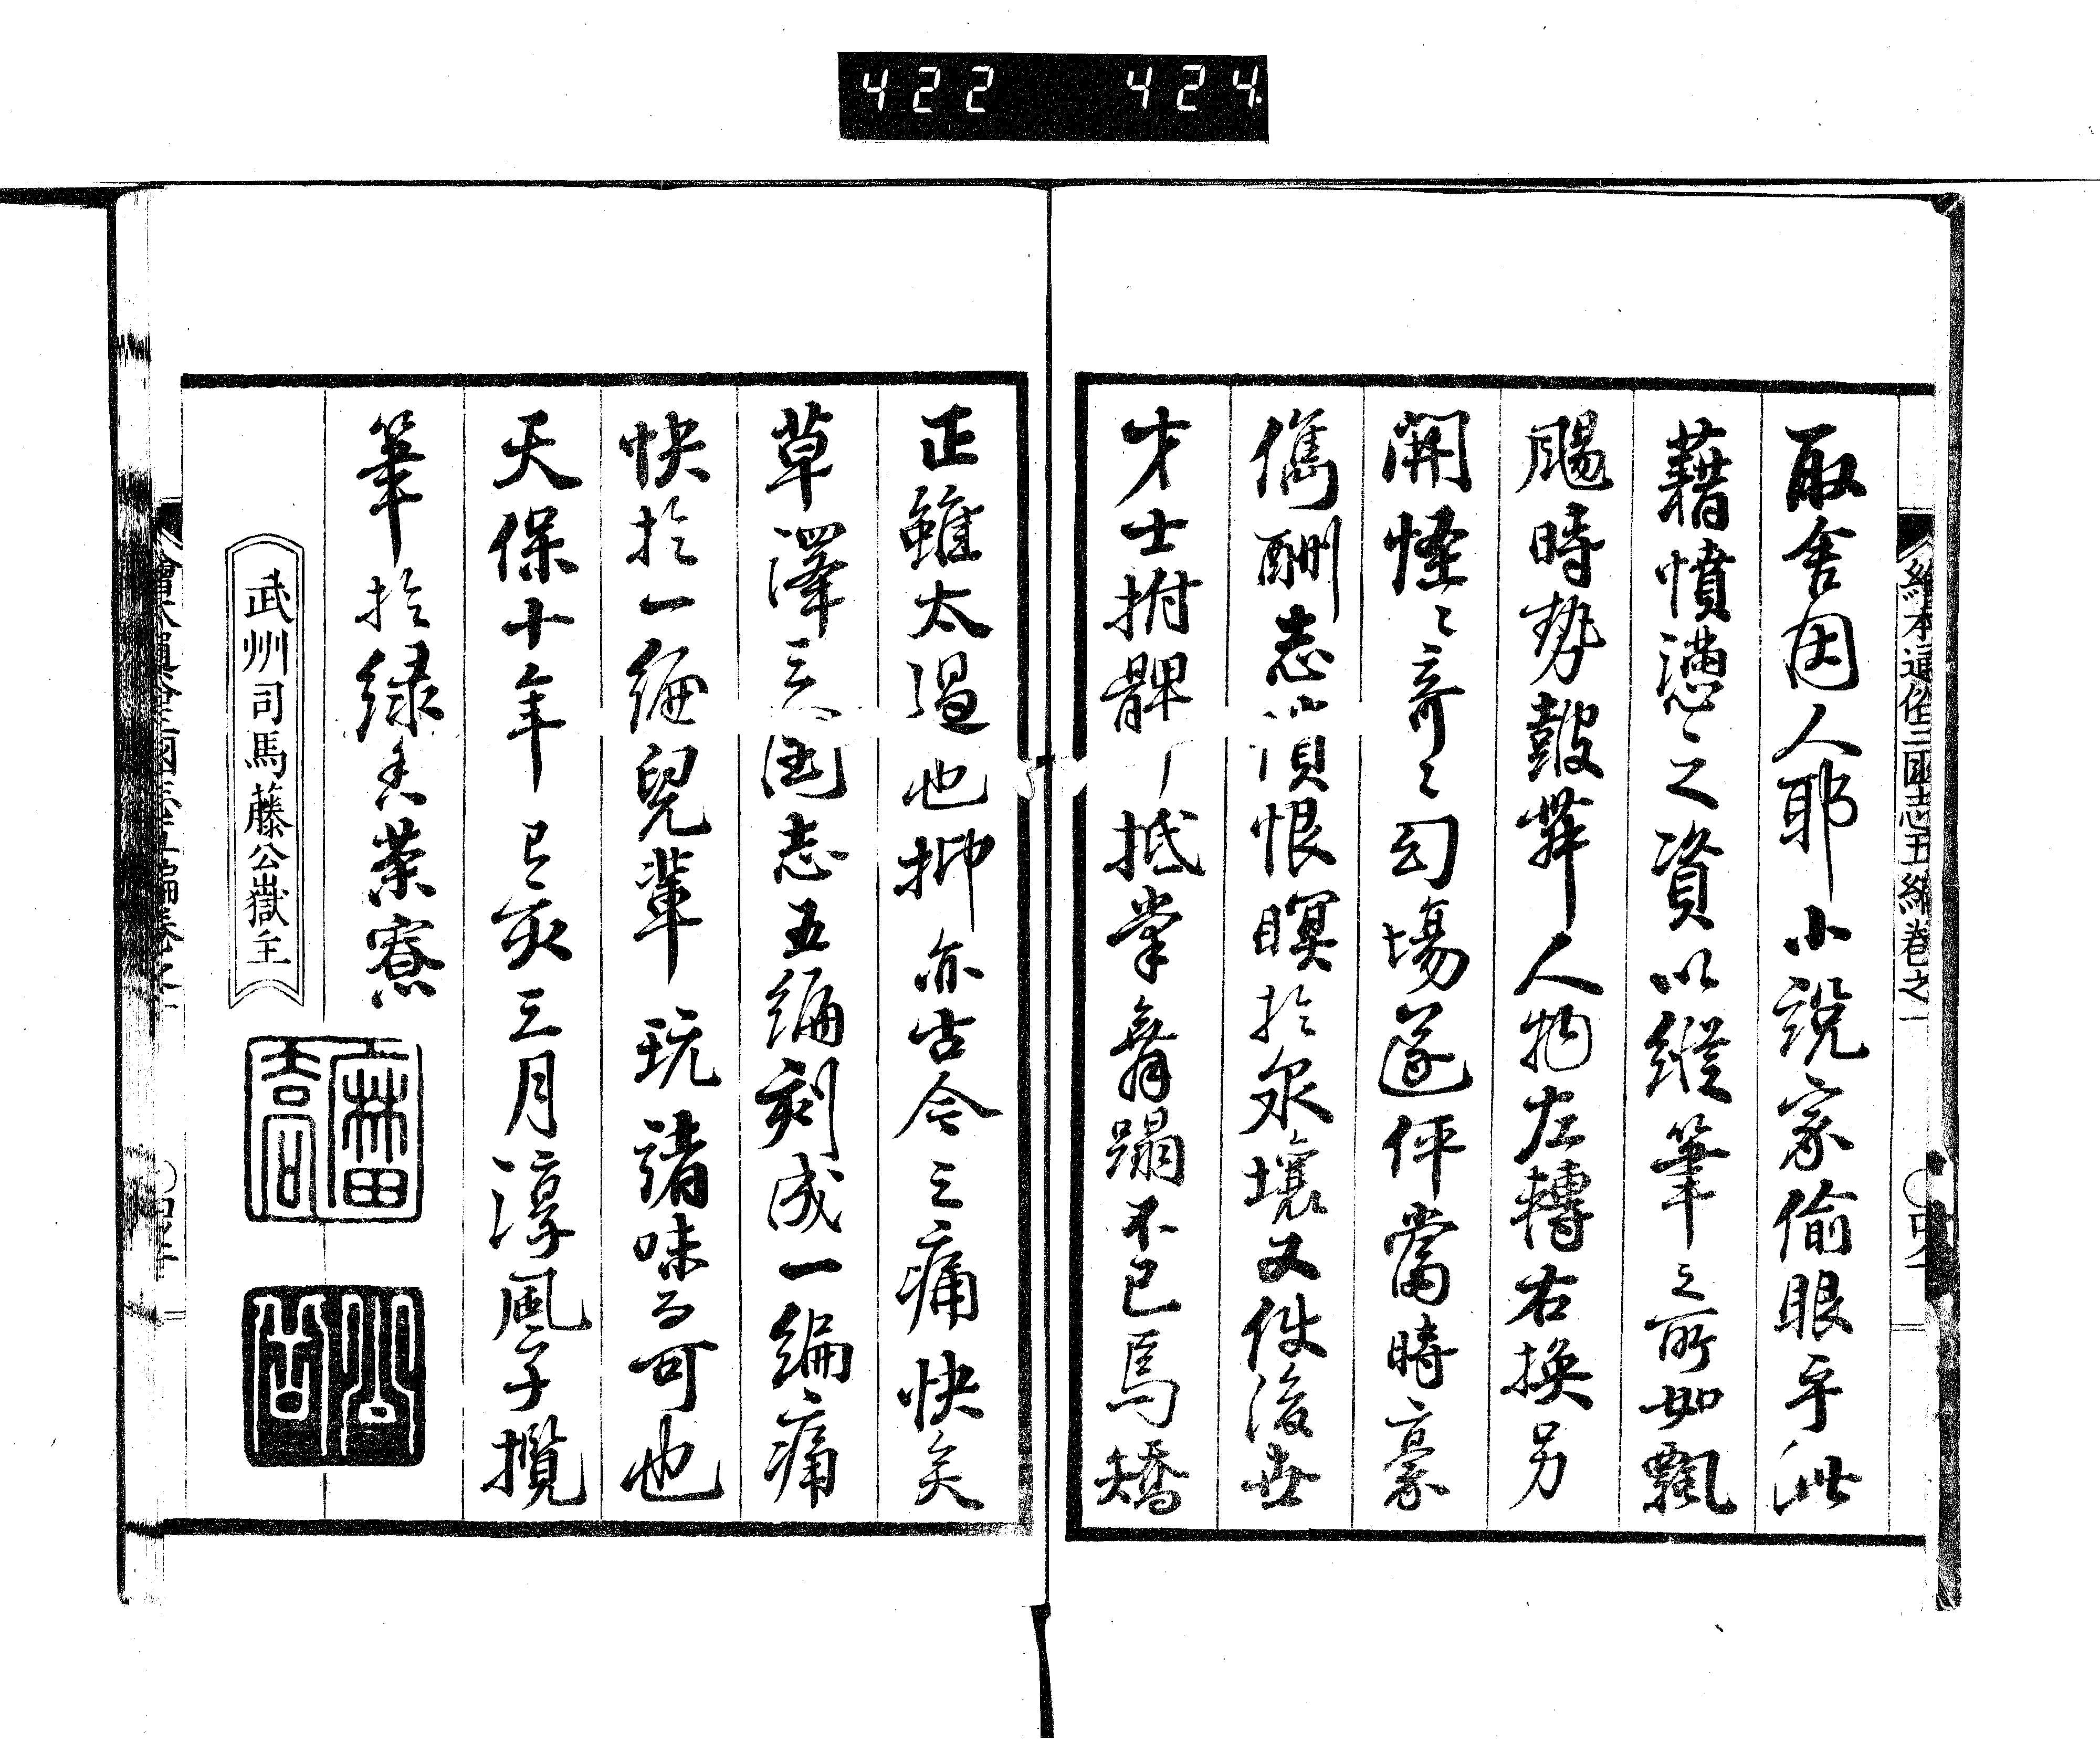 422 424
繪本通俗三國志五編卷之一
取舍因人耶小説家偷眼乎此
藉憤懣之資以縱筆之所如飄
颺時勢鼓舞人物左轉右換另
開怪〻奇〻幻場遂伻當時豪
儁酬志以 恨瞑於泉壤又使後世
才士拊髀 抵掌舞蹋不已焉矯
正雖太過也抑亦古今之痛快矣
草澤三國志五編刻成一編痛
快於一編兒輩玩諸味而可也
天保十年己亥三月淳風子攬
筆於緑 葉寮
武州司馬藤公嶽主